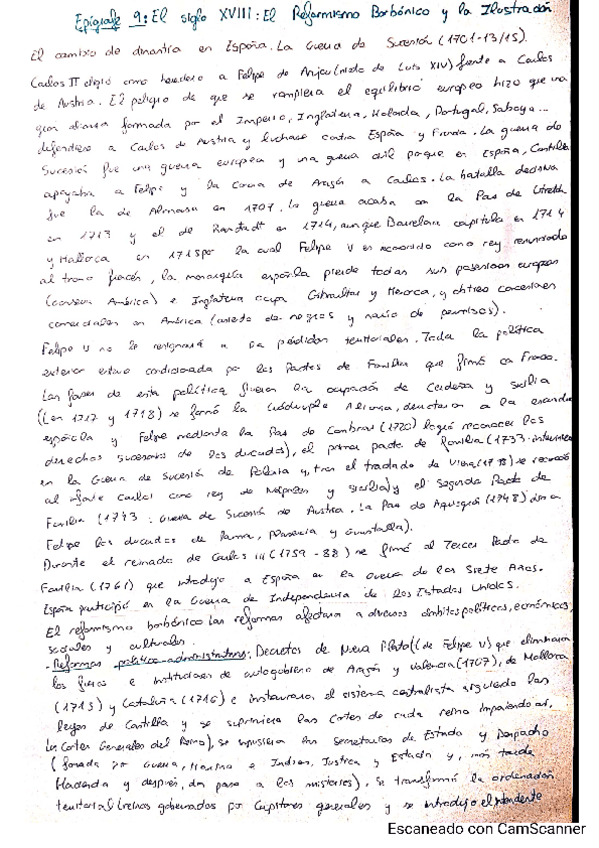 Epígrafe 9: El siglo XVIII: El Reformismo Borbónico y la Ilustración
El cambio de dinastía en España. La Guerra de Sucesión (1701-13/15).
Carlos II eligió como heredero a Felipe de Anjou (nieto de Luis XIV) frente a Carlos
de Austria. El peligro de que se rompiera el equilibrio europeo hizo que una
gran alianza formada por el Imperio, Inglaterra, Holanda, Portugal, Saboya...
defendiera a Carlos de Austria y luchase contra España y Francia. La guerra de
Sucesión fue una guerra europea y una guerra civil porque en España, Castilla
apoyaba a Felipe y la Corona de Aragón a Carlos. La batalla decisiva
fue la de Almansa en 1707. La guerra acaba con la Paz de Utrech
en 1713 y el de Ranstadt en 1714, aunque Barcelona capituló en 1714
y Mallorca en 1715 por la cual Felipe V es reconocido como rey renunciando
al trono francés, la monarquía española pierde todas sus posesiones europeas
(conserva América) e Inglaterra ocupa Gibraltar y Menorca, y obtiene concesiones
comerciales en América (asiento de negros y navío de permisos).
Felipe V no se resignará a sus pérdidas territoriales. Toda la política
exterior estuvo condicionada por los Pactos de Familia que firmó con Francia.
Las fases de esta política fueron la ocupación de Cerdeña y Sicilia
(en 1717 y 1718) se formó la Cuádruple Alianza, derrotaron a la escuadra
española y Felipe mediante la Paz de Cambray (1720) logró reconocer los
derechos sucesorios de los ducados), el primer pacto de familia (1733
en la Guerra de Sucesión de Polonia y, tras el tratado de Viena (1738) se reconoció
al infante Carlos como rey de Nápoles y Sicilia) y el Segundo Pacto de
Familia (1743: Guerra de Sucesión de Austria. La Paz de Aquisgrán (1748) dio a
Felipe los ducados de Parma, Plasencia y Guastalla).
Durante el reinado de Carlos III (1759-88) se firmó el Tercer Pacto de
Familia (1761) que introdujo a España en la Guerra de los Siete Años.
España participó en la Guerra de Independencia de los Estados Unidos.
El reformismo borbónico las reformas afectaron a diversos ámbitos políticos, económicos,
sociales y culturales.
- Reformas político-administrativas: Decretos de Nueva Planta (de Felipe V) que eliminaron
los fueros e instituciones de autogobierno de Aragón y Valencia (1707), de Mallorca
(1715) y Cataluña (1716) e instauraron el sistema centralista siguiendo las
leyes de Castilla y se suprimieron las Cortes de cada reino
las Cortes Generales del Reino), se impusieron las Secretarías de Estado y Despacho
(formada por Guerra, Marina e Indias, Justicia y Estado y, más tarde
Hacienda y después, dan paso a los ministerios), se transformó la ordenación
territorial (reinos gobernados por Capitanes generales y se introdujo el intendente
Escaneado con CamScanner